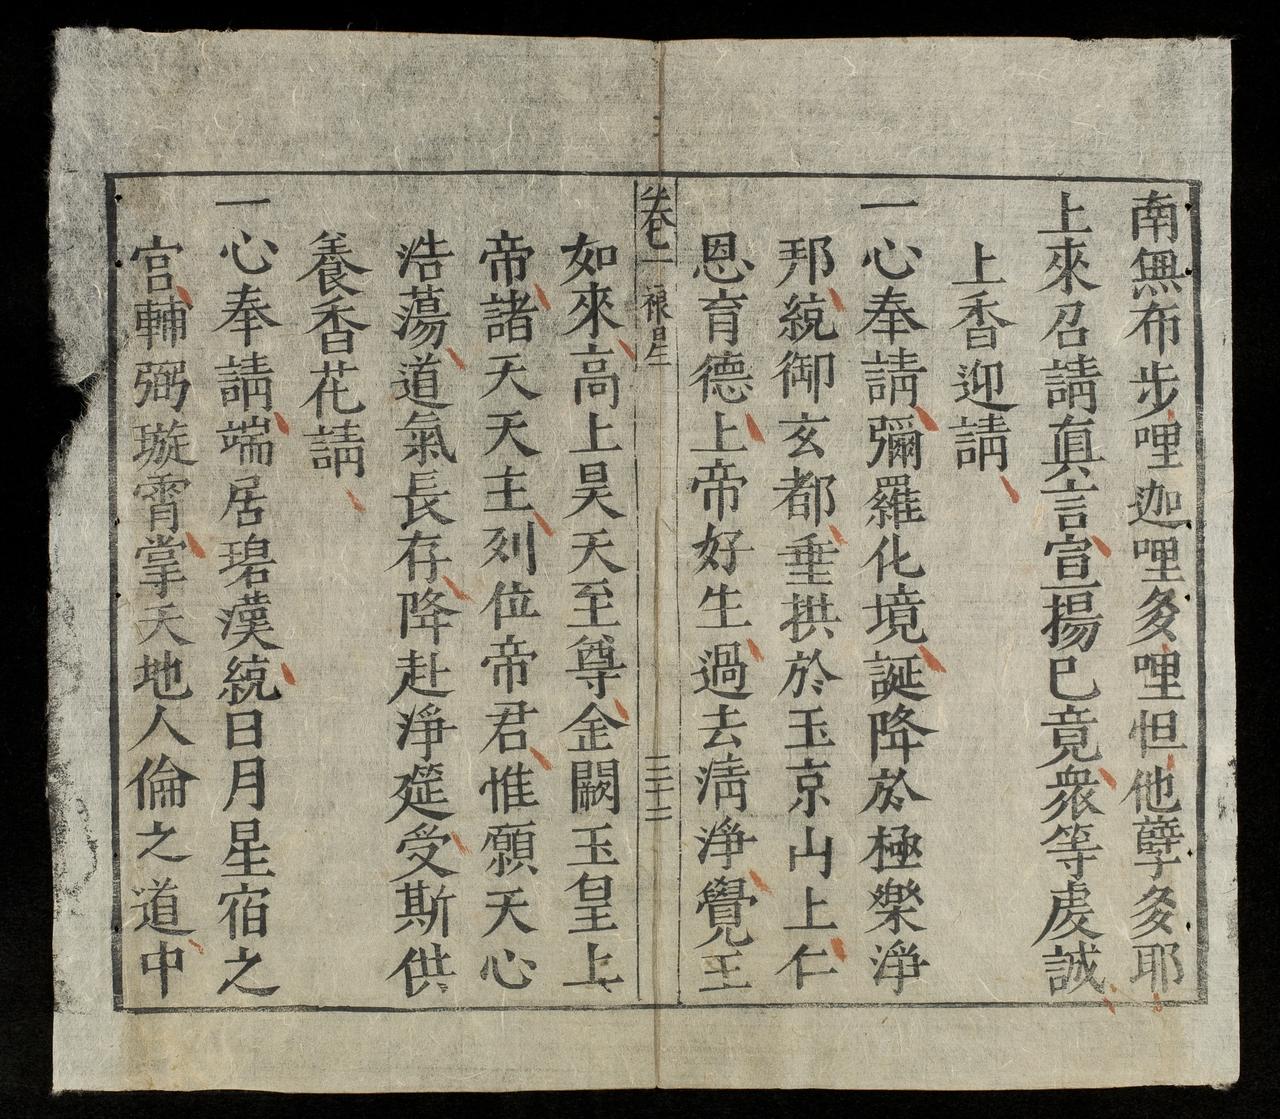 南無布步哩迦哩多哩怛他孽多耶
上來召請真言宣揚已竟衆等虔誠
上香迎請
一心奉請彌羅化境誕降於極樂淨
邦統御玄都垂拱於玉京山上仁
恩育德上帝好生過去清淨覺王
卷一 祿星 三十二
如來高上昊天至尊金闕玉皇上
帝諸天天主列位帝君惟願天心
浩蕩道氣長存降赴淨筵受斯供
養香花請
一心奉請端居碧漢統日月星宿之
宮輔弼璇霄掌天地人倫之道中